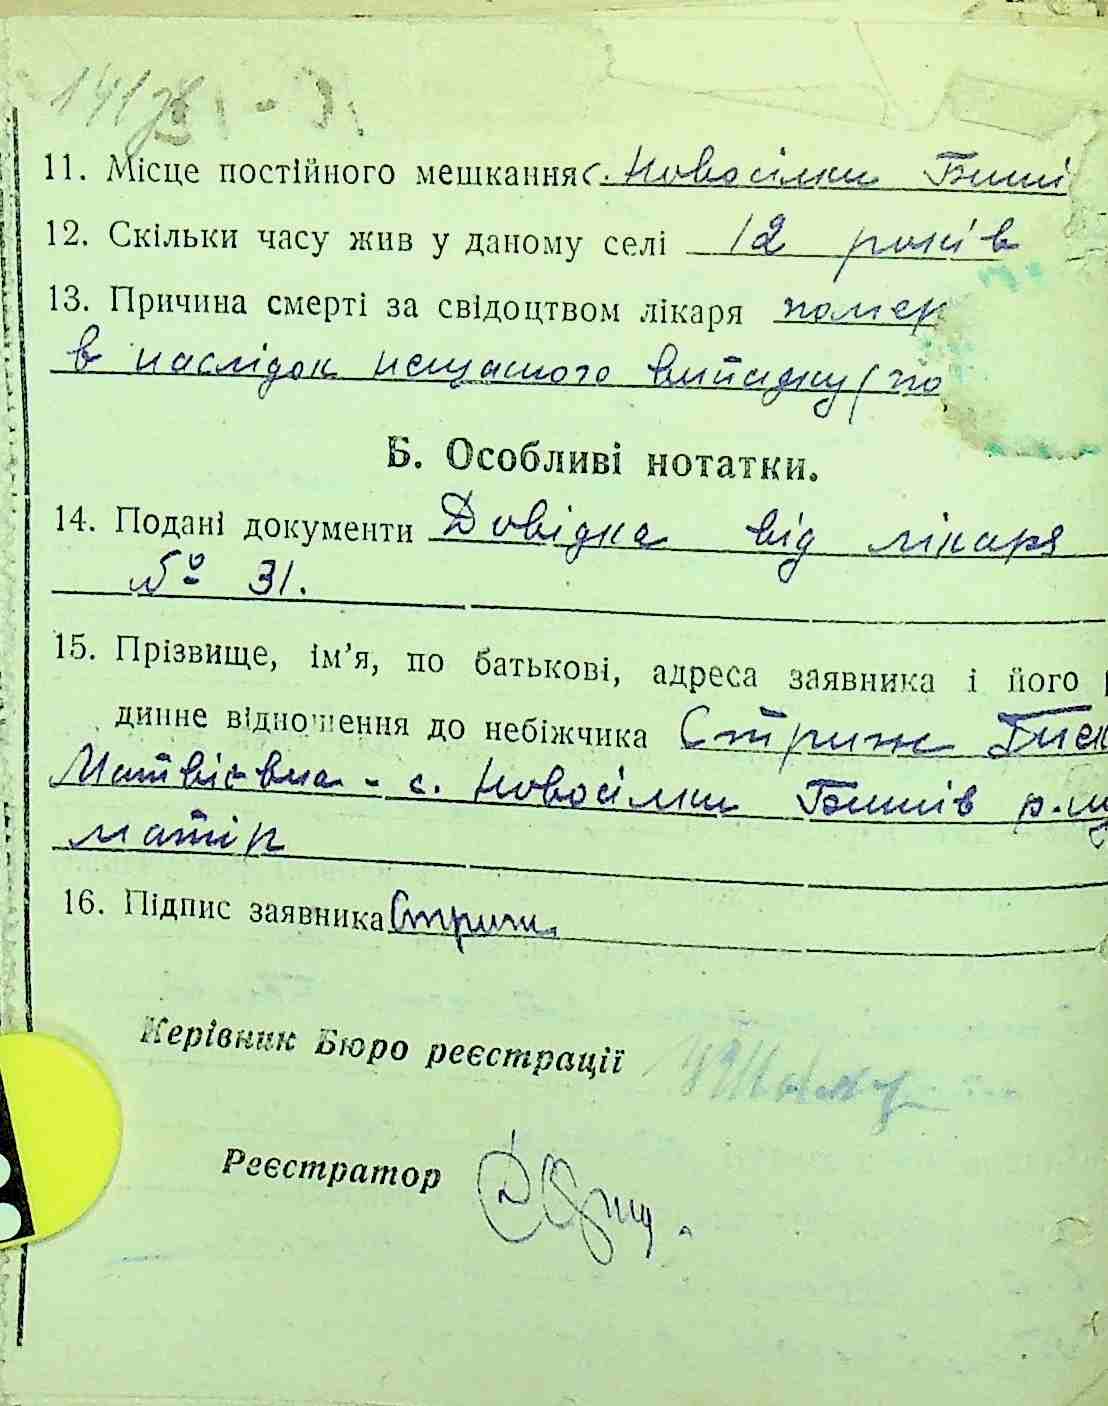 11. Місце постійного мешкання с. Новосілки Биші
12. Скільки часу жив у даному селі 12 років
13. Причина смерті за свідоцтвом лікаря помер
в наслідок нещасного випадку (по
Б. Особливі нотатки.
14. Подані документи Довідка від лікаря
№ 31.
15. Прізвище, ім'я, по батькові, адреса заявника і його
динне відношення до небіжчика Стриж
Матвієвна - с. Новосілки Бишів р-ну
матір
16. Підпис заявника Стриж
Керівник Бюро реєстрації
Реєстратор